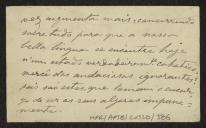 vez augmenta mais, concorrendo
sobre tudo para que a nossa
bella lingua se encontre hoje
n'um estado verdadeiramente
mercê dos audaciosos ignorantes;
pois são estes, que tomam o encar-
go de ser os seus algozes impune-
mente.
HAG/APTB/CX120/586